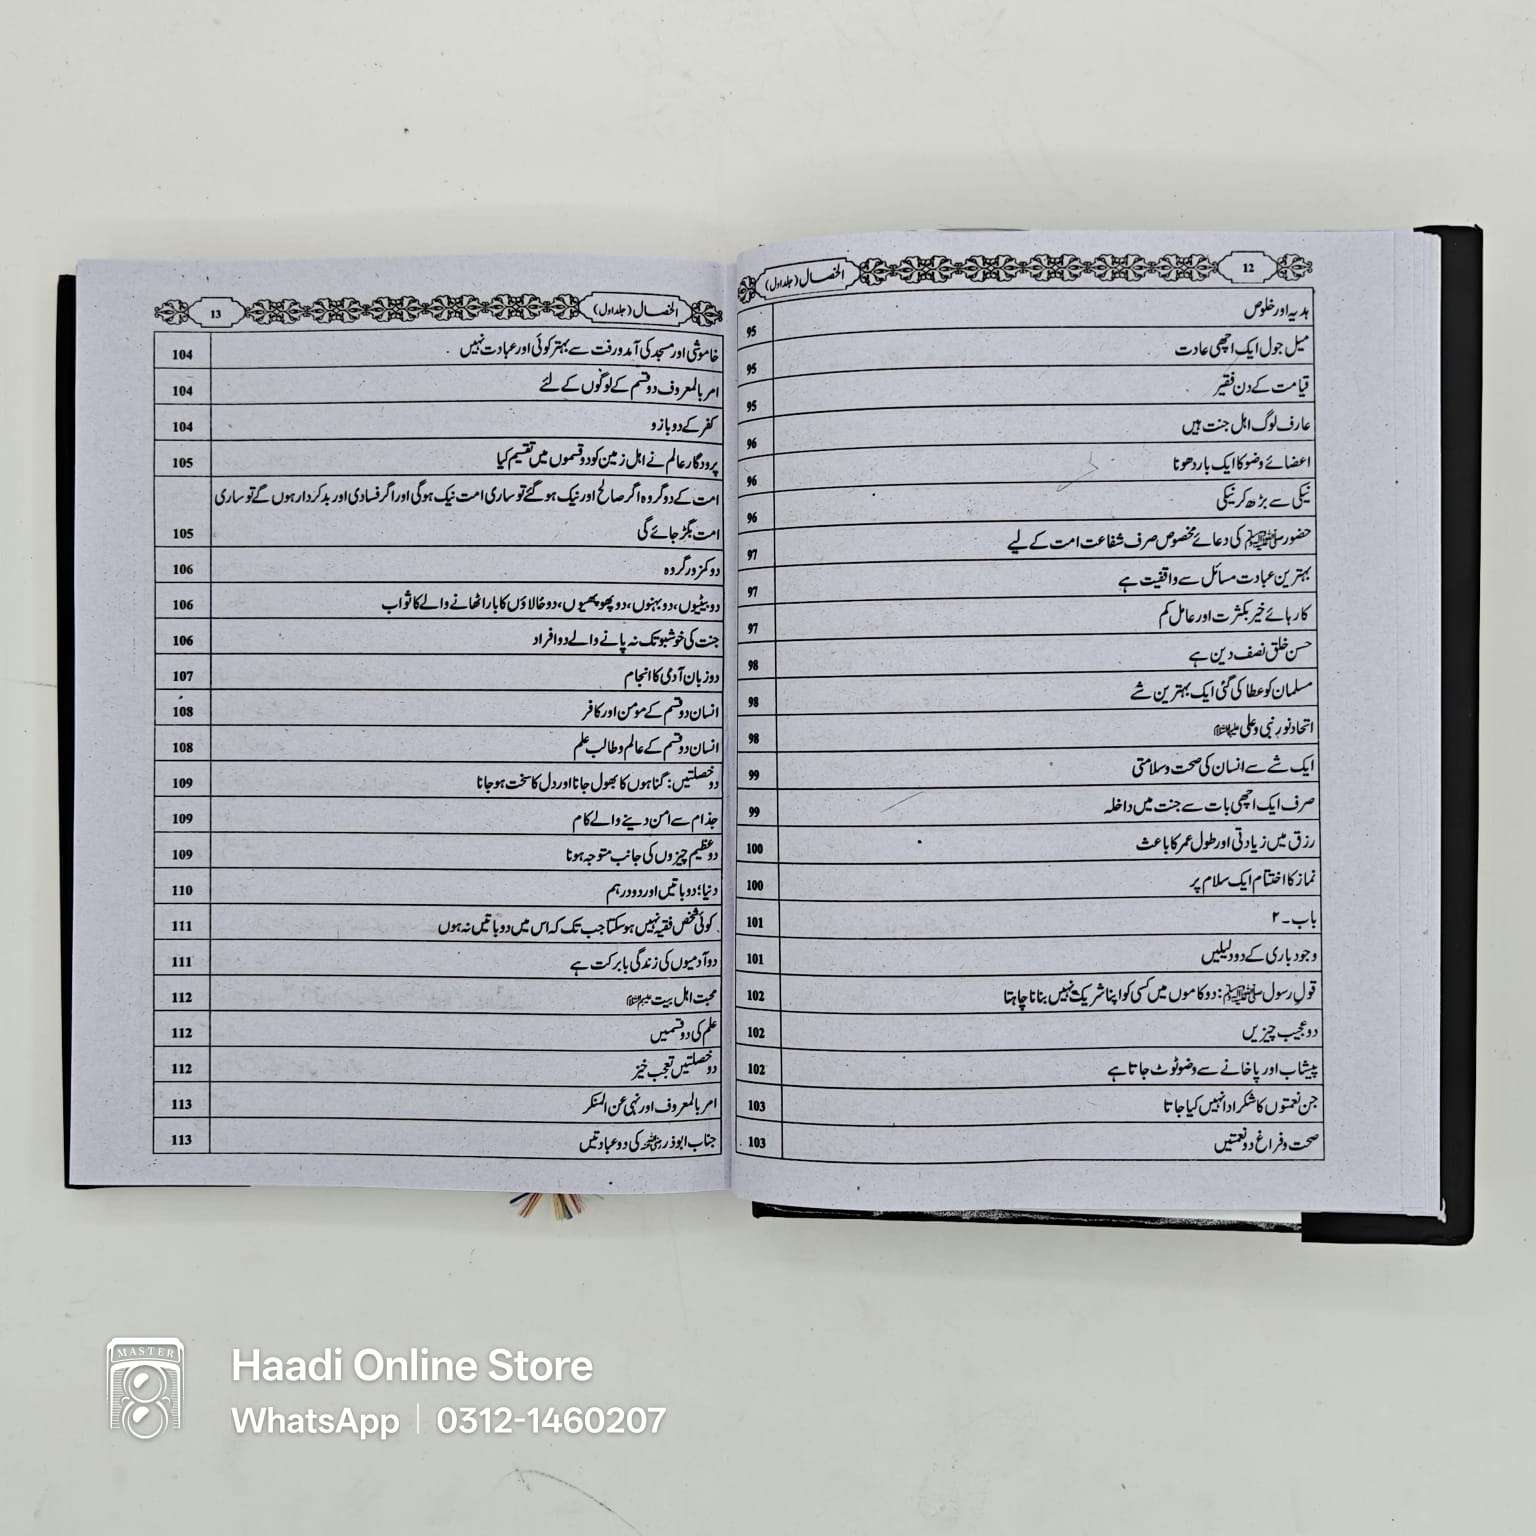 12 الخصال (جلد اول)
ہدیہ اور خلوص 95
میل جول ایک اچھی عادت 95
قیامت کے دن فقیر 95
عارف لوگ اہل جنت ہیں 96
اعضائے وضو کا ایک بار دھونا 96
نیکی سے بڑھ کر نیکی 96
حضور ﷺ کی دعائے مخصوص صرف شفاعت امت کے لیے 97
بہترین عبادت مسائل سے واقفیت ہے 97
کار ہائے خیر بکثرت اور عامل کم 97
حسن خلق نصف دین ہے 98
مسلمان کو عطا کی گئی ایک بہترین شے 98
اتحاد نور نبی و علی علیہا السلام 98
ایک شے سے انسان کی صحت و سلامتی 99
صرف ایک اچھی بات سے جنت میں داخلہ 99
رزق میں زیادتی اور طول عمر کا باعث 100
نماز کا اختتام ایک سلام پر 100
باب ۔ ۲ 101
وجود باری کے دو دلیلیں 101
قول رسول ﷺ: دو کاموں میں کسی کو اپنا شریک نہیں بنانا چاہتا 102
دو عجیب چیزیں 102
پیشاب اور پاخانے سے وضو ٹوٹ جاتا ہے 102
جن نعمتوں کا شکر ادا نہیں کیا جاتا 103
صحت و فراغ دو نعمتیں 103
13 الخصال (جلد اول)
خاموشی اور مسجد کی آمد و رفت سے بہتر کوئی اور عبادت نہیں 104
امر بالمعروف دو قسم کے لوگوں کے لئے 104
کفر کے دو بازو 104
پرودگار عالم نے اہل زمین کو دو قسموں میں تقسیم کیا 105
امت کے دو گروہ اگر صالح اور نیک ہو گئے تو ساری امت نیک ہوگی اور اگر فسادی اور بدکردار ہوں گے تو ساری
امت بگڑ جائے گی 105
دو کمزور گروہ 106
دو بیٹیوں، دو بہنوں، دو پھوپھیوں، دو خالاؤں کا بار اٹھانے والے کا ثواب 106
جنت کی خوشبو تک نہ پانے والے دو افراد 106
دو زبان آدمی کا انجام 107
انسان دو قسم کے مومن اور کافر 108
انسان دو قسم کے عالم و طالب علم 108
دو خصلتیں: گناہوں کا بھول جانا اور دل کا سخت ہو جانا 109
جذام سے امن دینے والے کام 109
دو عظیم چیزوں کی جانب متوجہ ہونا 109
دنیا؛ دو باتیں اور دو درہم 110
کوئی شخص فقیہ نہیں ہو سکتا جب تک کہ اس میں دو باتیں نہ ہوں 111
دو آدمیوں کی زندگی بابرکت ہے 111
محبت اہل بیت علیہم السلام 112
علم کی دو قسمیں 112
دو خصلتیں تعجب خیز 112
امر بالمعروف اور نہی عن المنکر 113
جناب ابوذر رضی اللہ عنہ کی دو عبادتیں 113
MASTER
Haadi Online Store
WhatsApp | 0312-1460207